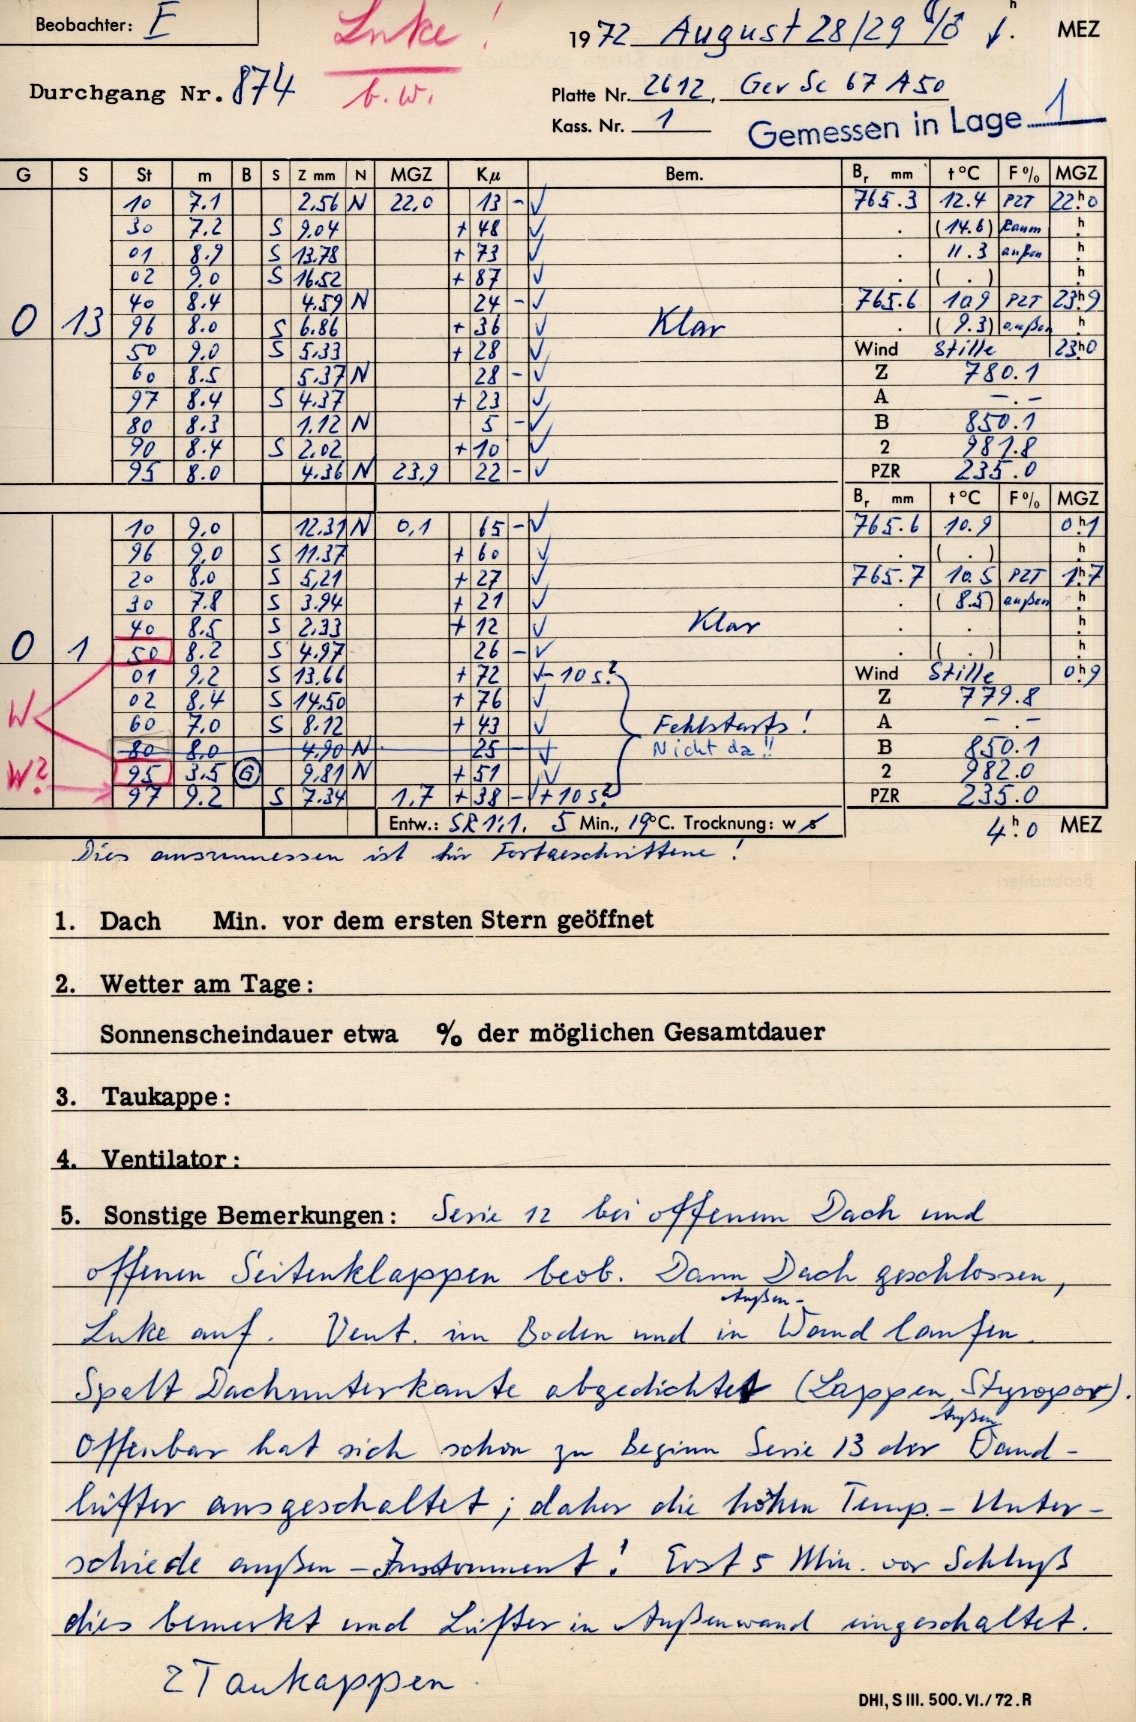 Beobachter: E
Luke!
b.w.
1972 August 28/29 ☾/♂ h MEZ
Durchgang Nr. 874
Platte Nr. 2612, Gev Sc 67 A50
Kass. Nr. 1
Gemessen in Lage 1
G S St m B S Z mm N MGZ Kμ Bem. Br mm t°C F% MGZ
10 7.1 2.56 N 22,0 13 - √ 765.3 12.4 PZT 22h0
30 7.2 S 9.04 + 48 √ . (14.6) Raum h
01 8.9 S 13.78 + 73 √ . 11.3 außen h
02 9.0 S 16.52 + 87 √ . ( . ) h
40 8.4 4.59 N 24 - √ 765.6 10.9 PZT 23h9
0 13 96 8.0 S 6.86 + 36 √ Klar . (9.3) außen h
50 9.0 S 5.33 + 28 √ Wind Stille 23h0
60 8.5 5.37 N 28 - √ Z 780.1
97 8.4 S 4.37 + 23 √ A -.-
80 8.3 1.12 N 5 - √ B 850.1
90 8.4 S 2.02 + 10 √ 2 981.8
95 8.0 4.36 N 23,9 22 - √ PZR 235.0
Br mm t°C F% MGZ
10 9.0 12.31 N 0,1 65 - √ 765.6 10.9 0h1
96 9,0 S 11.37 + 60 √ . ( . ) h
20 8.0 S 5,21 + 27 √ 765.7 10.5 PZT 1h7
30 7.8 S 3.94 + 21 √ . (8.5) außen h
40 8.5 S 2.33 + 12 √ Klar . . h
0 1 50 8.2 S 4.97 26 - √ . ( . ) h
01 9.2 S 13.66 + 72 √ - 10 s? Wind Stille 0h9
W 02 8.4 S 14.50 + 76 √ Z 779.8
60 7.0 S 8.12 + 43 √ Fehlstarts! A -.-
80 8,0 4.90 N 25 - Nicht da!! B 850.1
W? 95 3.5 G 9.81 N + 51 √ 2 982.0
97 9.2 S 7.34 1,7 + 38 - √ + 10 s? PZR 235.0
Entw.: SR 1:1, 5 Min., 19°C. Trocknung: w s 4h0 MEZ
Dies auszumessen ist für Fortgeschrittene!
1. Dach Min. vor dem ersten Stern geöffnet
2. Wetter am Tage:
Sonnenscheindauer etwa % der möglichen Gesamtdauer
3. Taukappe:
4. Ventilator:
5. Sonstige Bemerkungen: Serie 12 bei offenem Dach und
offenen Seitenklappen beob. Dann Dach geschlossen,
Luke auf. Vent. im Boden und in Außen-Wand laufen.
Spalt Dachunterkante abgedichtet (Lappen, Styropor).
Offenbar hat sich schon zu Beginn Serie 13 der Außen Wand-
lüfter ausgeschaltet; daher die hohen Temp.-Unter-
schiede außen - Instrument! Erst 5 Min. vor Schluß
dies bemerkt und Lüfter in Außenwand eingeschaltet.
2 Taukappen.
DHI, S III. 500. VI./72. R